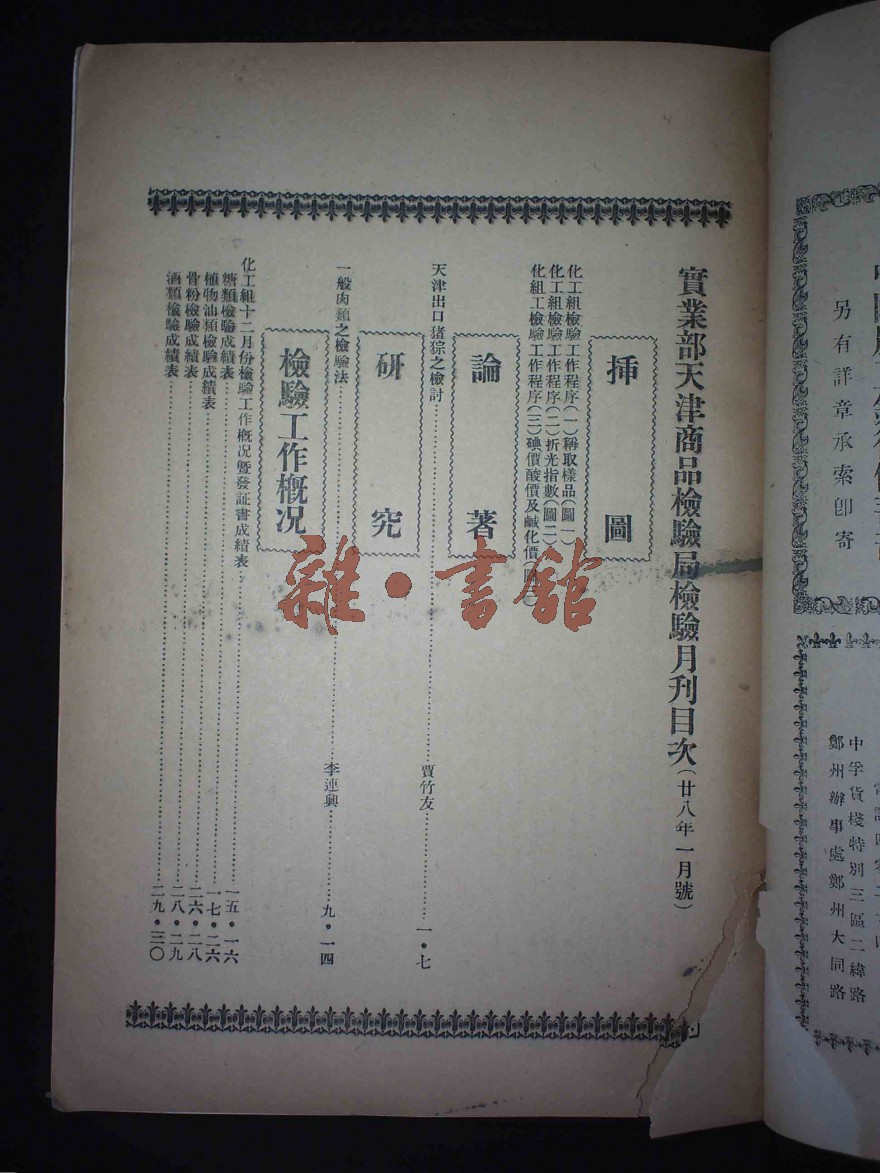 實業部天津商品檢驗局檢驗月刊目次(廿八年一月號)
挿圖
化工組檢驗工作程序(一)稱取樣品(圖一)
化工組檢驗工作程序(二)折光指數(圖二)
化組工檢驗工作程序(三)碘價酸價及鹹化價
論著
天津出口猪猔之檢討……賈竹友……一・七
研究
一般肉類之檢驗法……李連興……九・一四
檢驗工作概况
化工組十二月份檢驗工作概况暨發証書成績表……一五・一六
糖類檢驗成績表……一七・二六
植物油類檢驗成績表……二六・二八
骨粉檢驗成績表……二八・二九
酒類檢驗成績表……二九・三〇
雜・書館
另有詳章承索卽寄
中孚貨棧特別三區二緯路
鄭州辦事處鄭州大同路